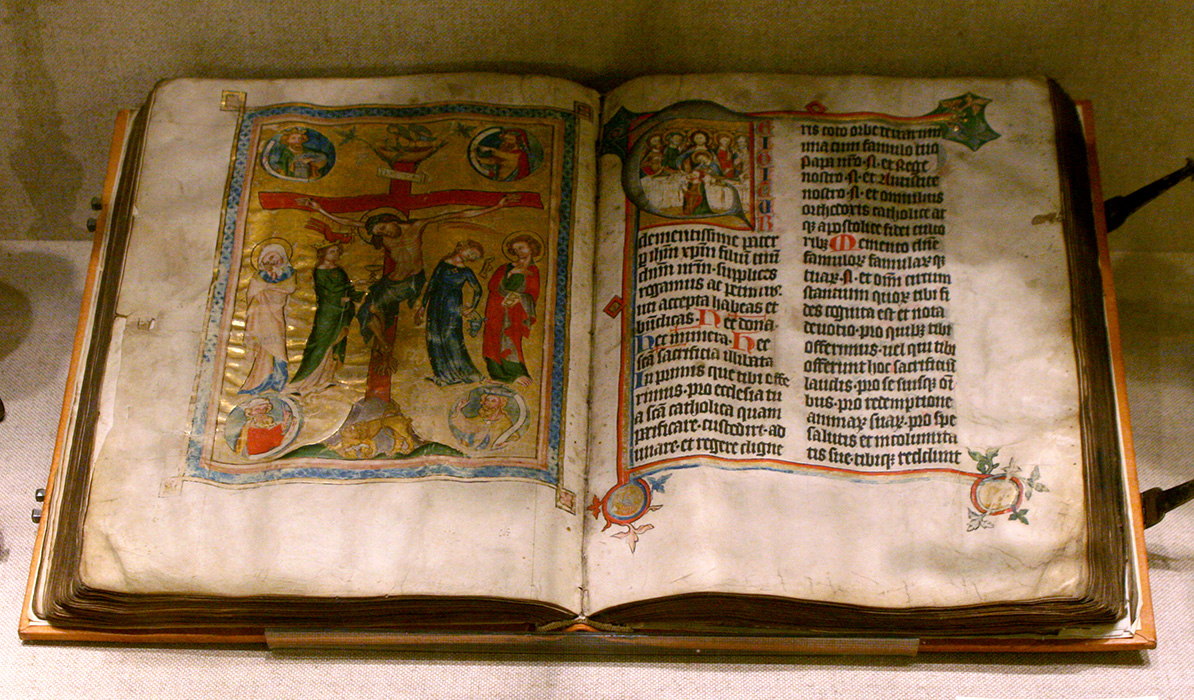 EIGITUR
clementissime pater
p ihm xpm filiu tuu
dnm nrm. supplices
rogamus ac petimus.
uti accepta habeas et
bndicas. Hec dona.
Hec munera. Hec
sca sacrificia illibata
In primis que tibi offe
rimus. pro ecclesia tu
a sca catholica quam
pacificare. custodire. ad
unare. et regere digne
ris toto orbe terrarum
una cum famulo tuo
Papa nro. N. et Rege
nostro. N. et Antistite
nostro. N. et omnibus
orthodoxis catholice at
qꝫ apostolice fidei culto
ribꝫ Memento dne
famuloꝝ famulaꝝ qꝫ
tuaꝝ. N. et omiu circum
stantium quoꝝ tibi fi
des cognita est et nota
deuotio. pro quibꝫ tibi
offerimus. uel qui tibi
offerunt hoc sacrificiu
laudis. pro se suisqꝫ oi
bus. pro redemptione
animaꝝ suaꝝ. pro spe
salutis et incolumita
tis sue. tibiqꝫ reddunt